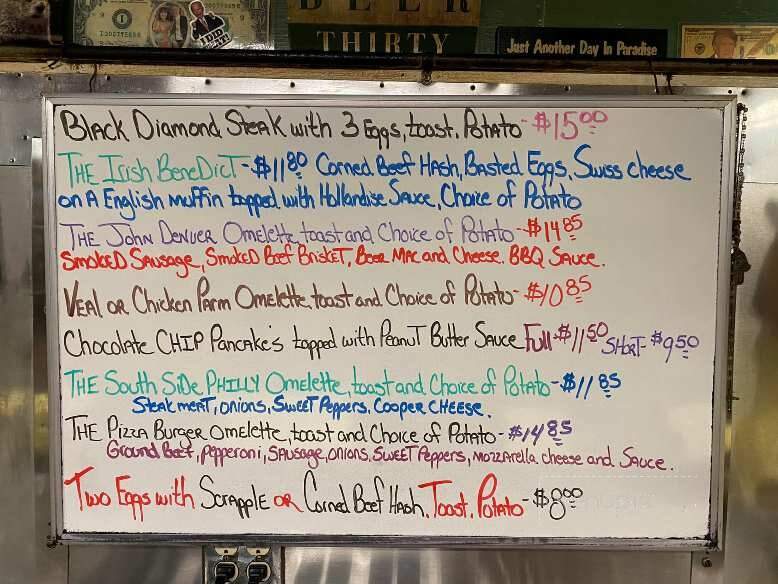 BEER
THIRTY
Just Another Day In Paradise
I DID THAT!
1
Black Diamond Steak with 3 Eggs, toast, Potato - $15.00
THE Irish BeneDicT - $11.80 Corned Beef Hash, Basted Eggs, Swiss cheese
on A English muffin topped with Hollandise Sauce, Choice of Potato
THE John Denver Omelette, toast and Choice of Potato - $14.85
SmokeD Sausage, SmokeD Beef BriskeT, Beer Mac and Cheese, BBQ Sauce.
Veal or Chicken Parm Omelette, toast and Choice of Potato - $10.85
Chocolate CHIP Pancake's topped with PeanuT Butter Sauce Full - $11.50 SHorT - $9.50
THE South SiDe PHILLY Omelette, toast and Choice of Potato - $11.85
Steak meaT, onions, SweeT Peppers, Cooper CHeese.
THE Pizza Burger omelette, toast and Choice of Potato - $14.85
Ground Beef, Pepperoni, Sausage, onions, SweeT Peppers, mozzarella cheese and Sauce.
Two Eggs with Scrapple or Corned Beef Hash, Toast, Potato - $8.00